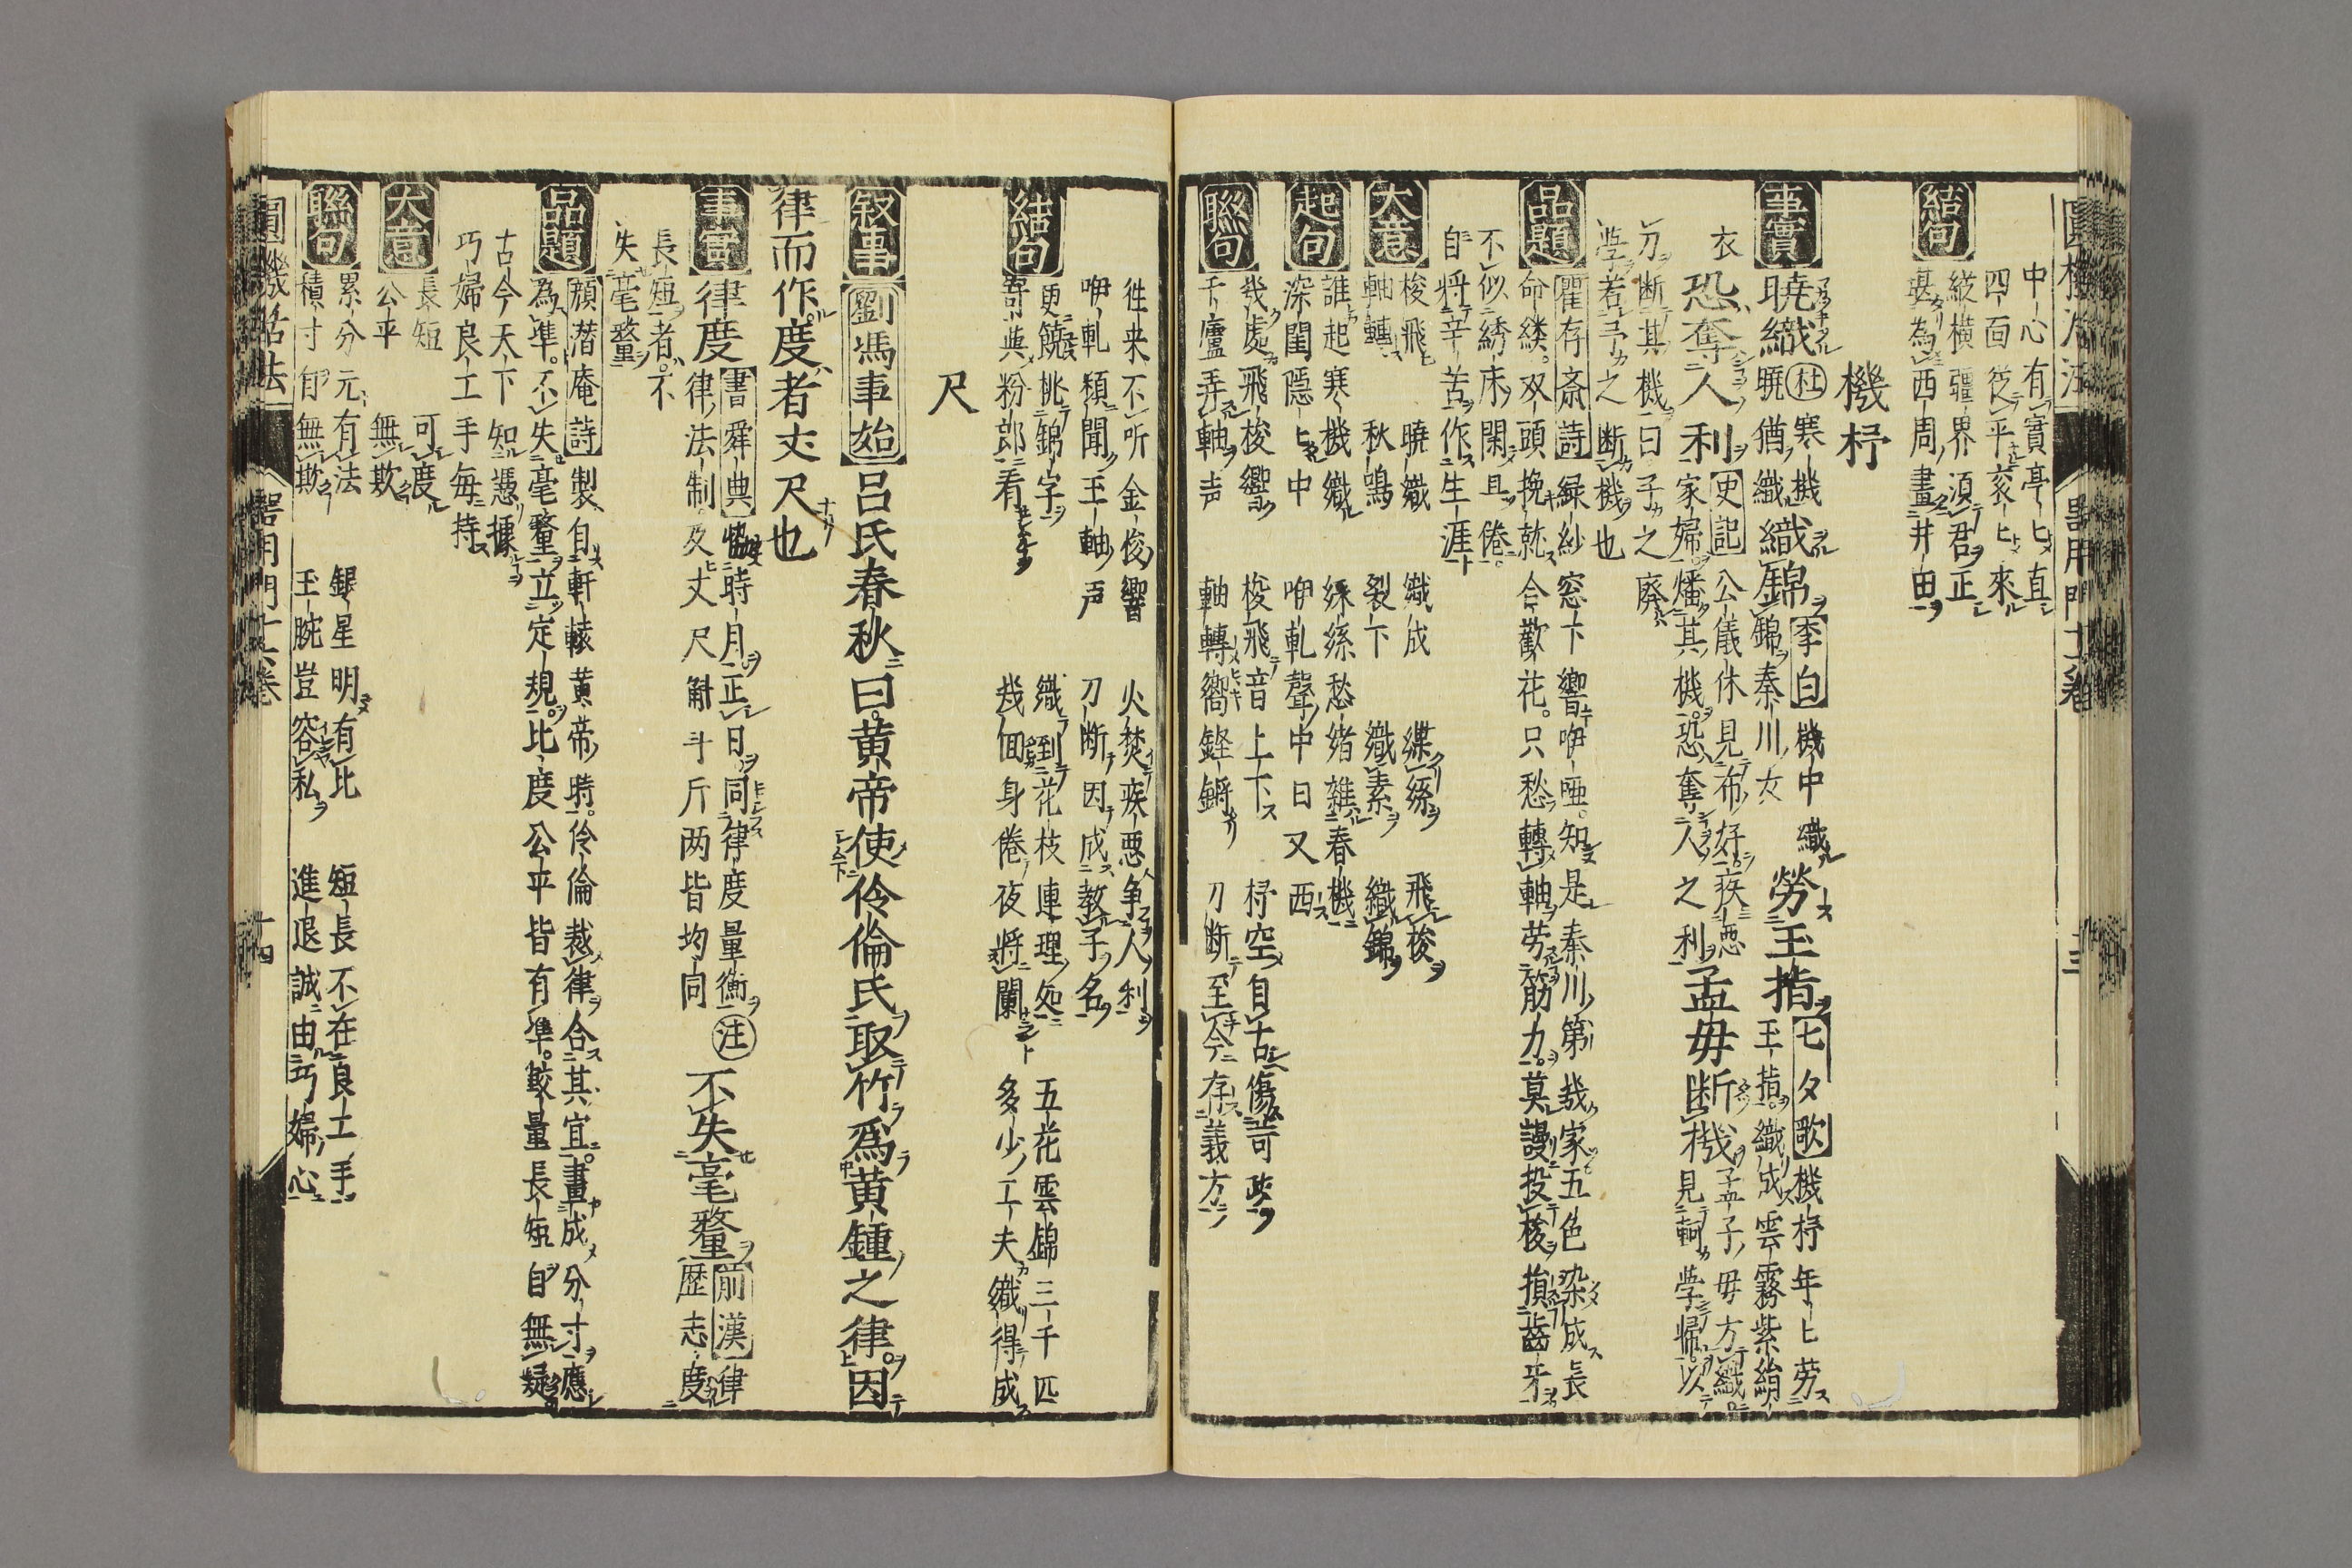 中心有實亭〻直
四面從平袤〻來
結句
縱橫疆界須君正
堪為西周畫井田
機杼
事實
曉織
杜寒機曉猶織
織錦
李白機中織錦秦川女
勞玉指
七夕歌機杼年〻勞玉指織成雲霧紫綃衣
恐奪人利
史記公儀休見布好疾惡家婦燔其機恐奪人之利
孟母断機
孟子母方織見軻學歸以刀断其機曰子之廢學若予之断機也
品題
瞿存斎詩緑紗窓下響咿唖知是秦川第幾家五色染成長命縷双頭挽就合歡花只愁轉軸劳筋力莫謾投梭損齒牙不似綉床閑且倦自将辛苦作生涯
大意
梭飛 曉織 織成 繅絲 飛梭
軸轉 秋鳴 裂下 織素 織錦
起句
誰起寒機織 絲絲愁緒雜春機
深閨隱〻中 咿軋聲中日又西
聯句
幾處飛梭響 梭飛音上下 杼空自古傷苛政
千廬弄軸声 軸轉嚮鏗鏘 刀断至今存義方
徃来不听金梭響 火焚疾惡争人利
咿軋頻聞玉軸声 刀断因成教子名
結句
更饒桃錦字 織到花枝連理處 五花雲錦三千匹
寄與粉郎看 幾個身倦夜將闌 多少工夫織得成
尺
叙事
劉馮事始呂氏春秋曰黄帝使伶倫氏取竹爲黄鍾之律因
律而作度者丈尺也
事實
律度
書舜典協時月正日同律度量衡注律法制及丈尺斛斗斤两皆均同
不失毫釐
前漢律歴志度長短者不失毫釐
品題
顔潜庵詩製自軒轅黄帝時伶倫裁律合其宜畫成分寸應為準不失毫釐立定規比度公平皆有準較量長短自無疑
古今天下知憑據
巧婦良工手每持
大意
長短 可度
公平 無欺
聯句
累分元有法 銀星明有比 短長不在良工手
積寸自無欺 玉腕豈容私 進退誠由巧婦心
圓機活法 器用門十六巻 十四